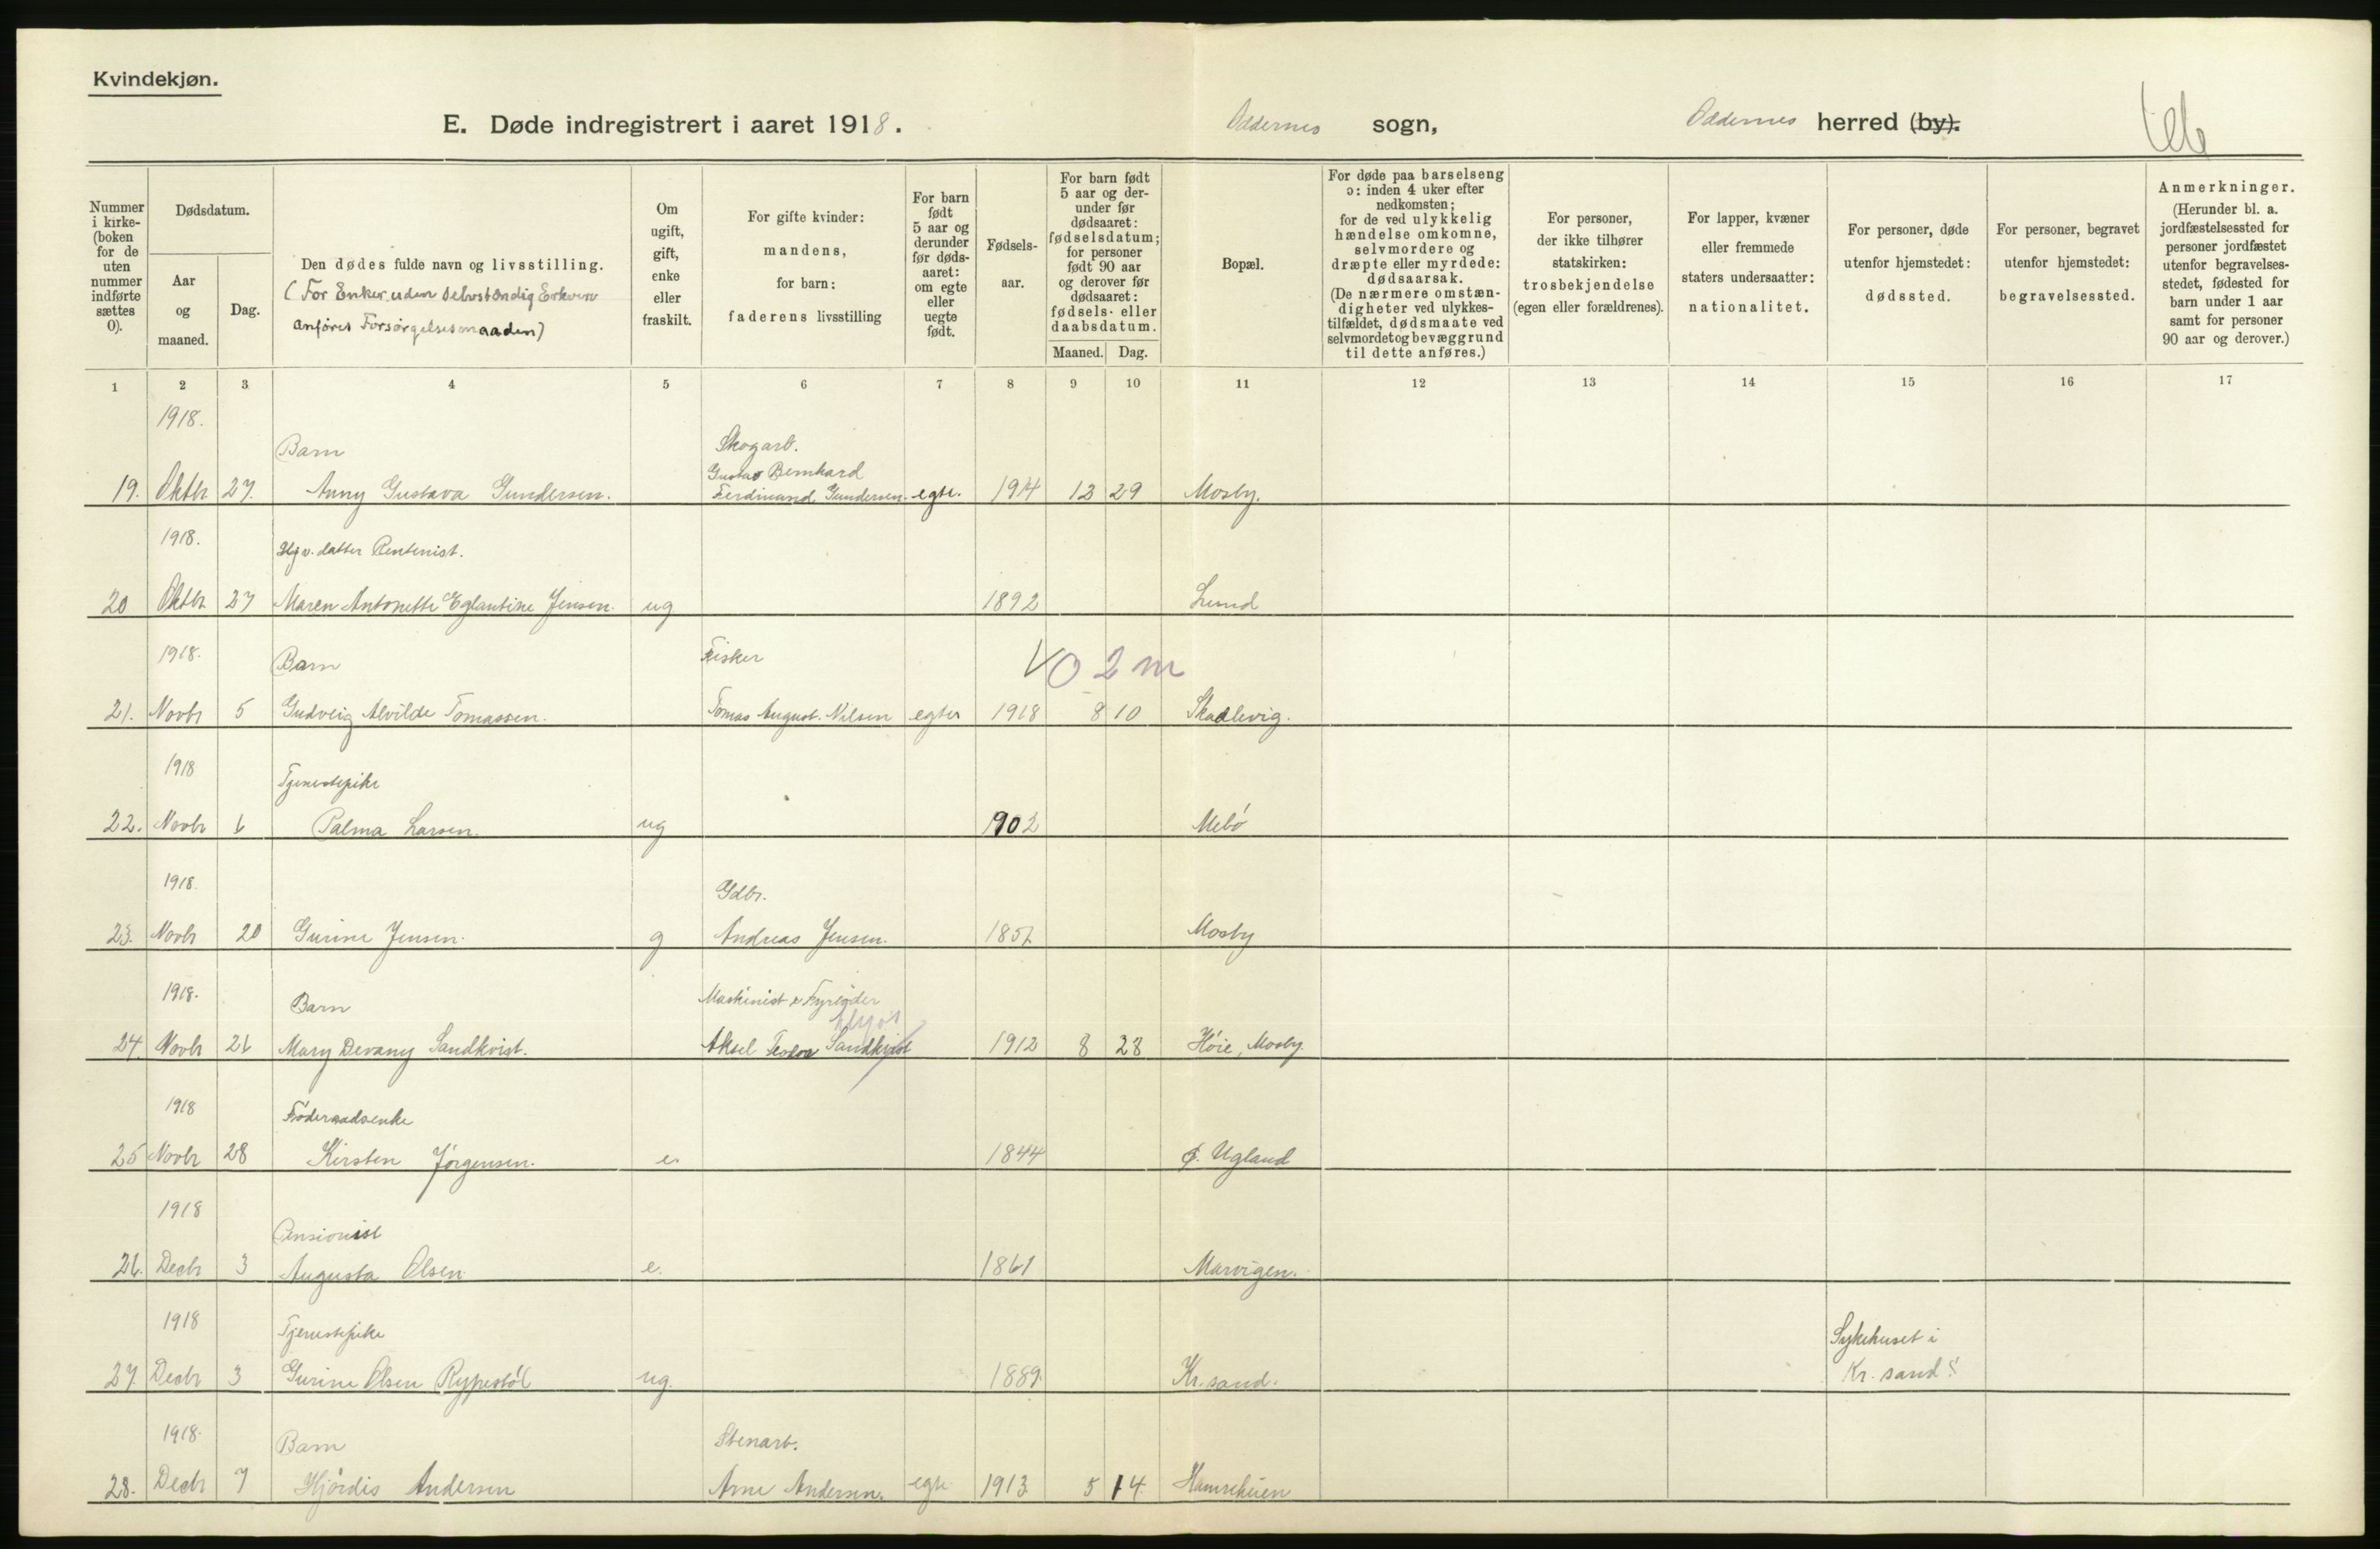 Kvindekjøn.
E. Døde indregistrert i aaret 1918.
Oddernes sogn,
Oddernes herred (by).
Nummer i kirke- (boken for de uten nummer indførte sættes 0).
Dødsdatum.
Aar og maaned.
Dag.
Den dødes fulde navn og livsstilling.
(For Enker uden selvstændig Erhverv
anføres Forsørgelsesmaaden)
Om ugift, gift, enke eller fraskilt.
For gifte kvinder: mandens, for barn: faderens livsstilling
For barn født 5 aar og derunder før døds- aaret: om egte eller uegte født.
Fødsels- aar.
For barn født 5 aar og der- under før dødsaaret: fødselsdatum; for personer født 90 aar og derover før dødsaaret: fødsels- eller daabsdatum.
Maaned. Dag.
Bopæl.
For døde paa barselseng ɔ: inden 4 uker efter nedkomsten; for de ved ulykkelig hændelse omkomne, selvmordere og dræpte eller myrdede: dødsaarsak. (De nærmere omstæn- digheter ved ulykkes- tilfældet, dødsmaate ved selvmordet og bevæggrund til dette anføres.)
For personer, der ikke tilhører statskirken: trosbekjendelse (egen eller forældrenes).
For lapper, kvæner eller fremmede staters undersaatter: nationalitet.
For personer, døde utenfor hjemstedet: dødssted.
For personer, begravet utenfor hjemstedet: begravelsessted.
Anmerkninger. (Herunder bl. a. jordfæstelsessted for personer jordfæstet utenfor begravelses- stedet, fødested for barn under 1 aar samt for personer 90 aar og derover.)
1 2 3 4 5 6 7 8 9 10 11 12 13 14 15 16 17
1918.
Barn
Skogarb.
Gustav Bernhard
19. Oktbr 27. Anny Gustava Gundersen. Ferdinand Gundersen. egte. 1914 12 29 Mosby.
1918.
Hjv. datter Rentenist.
20 Oktbr 27 Maren Antonette Eglantine Jensen. ug 1892 Lund
1918.
Barn
Fisker
0 2 m
21. Novbr 5 Gudveig Alvilde Tomassen. Tomas August Nilsen egter 1918 8 10 Skaalevig.
1918
Tjenestepike
22. Novbr 6 Palma Larsen. ug 1902 Mebø
1918.
Gdbr.
23. Novbr 20 Gurine Jensen. g Andreas Jensen. 1857 Mosby
1918.
Barn
Maskinist & Fyrbøder
24. Novbr 26 Mary Devany Sandkvist. Aksel Teodor Sandkvist 1912 8 28 Høie, Mosby.
1918
Føderaadsenke
25 Novbr 28 Kirsten Jørgensen. e. 1844 Ø. Ugland
1918
Pensionist
26. Decbr 3 Augusta Olsen e. 1861 Marvigen.
1918
Tjenestepike
Sykehuset i
27. Decbr 3 Gurine Olsen Rypestøl ug. 1889 Kr.sand. Kr. sand S
1918.
Barn
Stenarb.
28. Decbr 7 Hjørdis Andersen Arne Andersen. egte 1913 5 14 Hamreheien